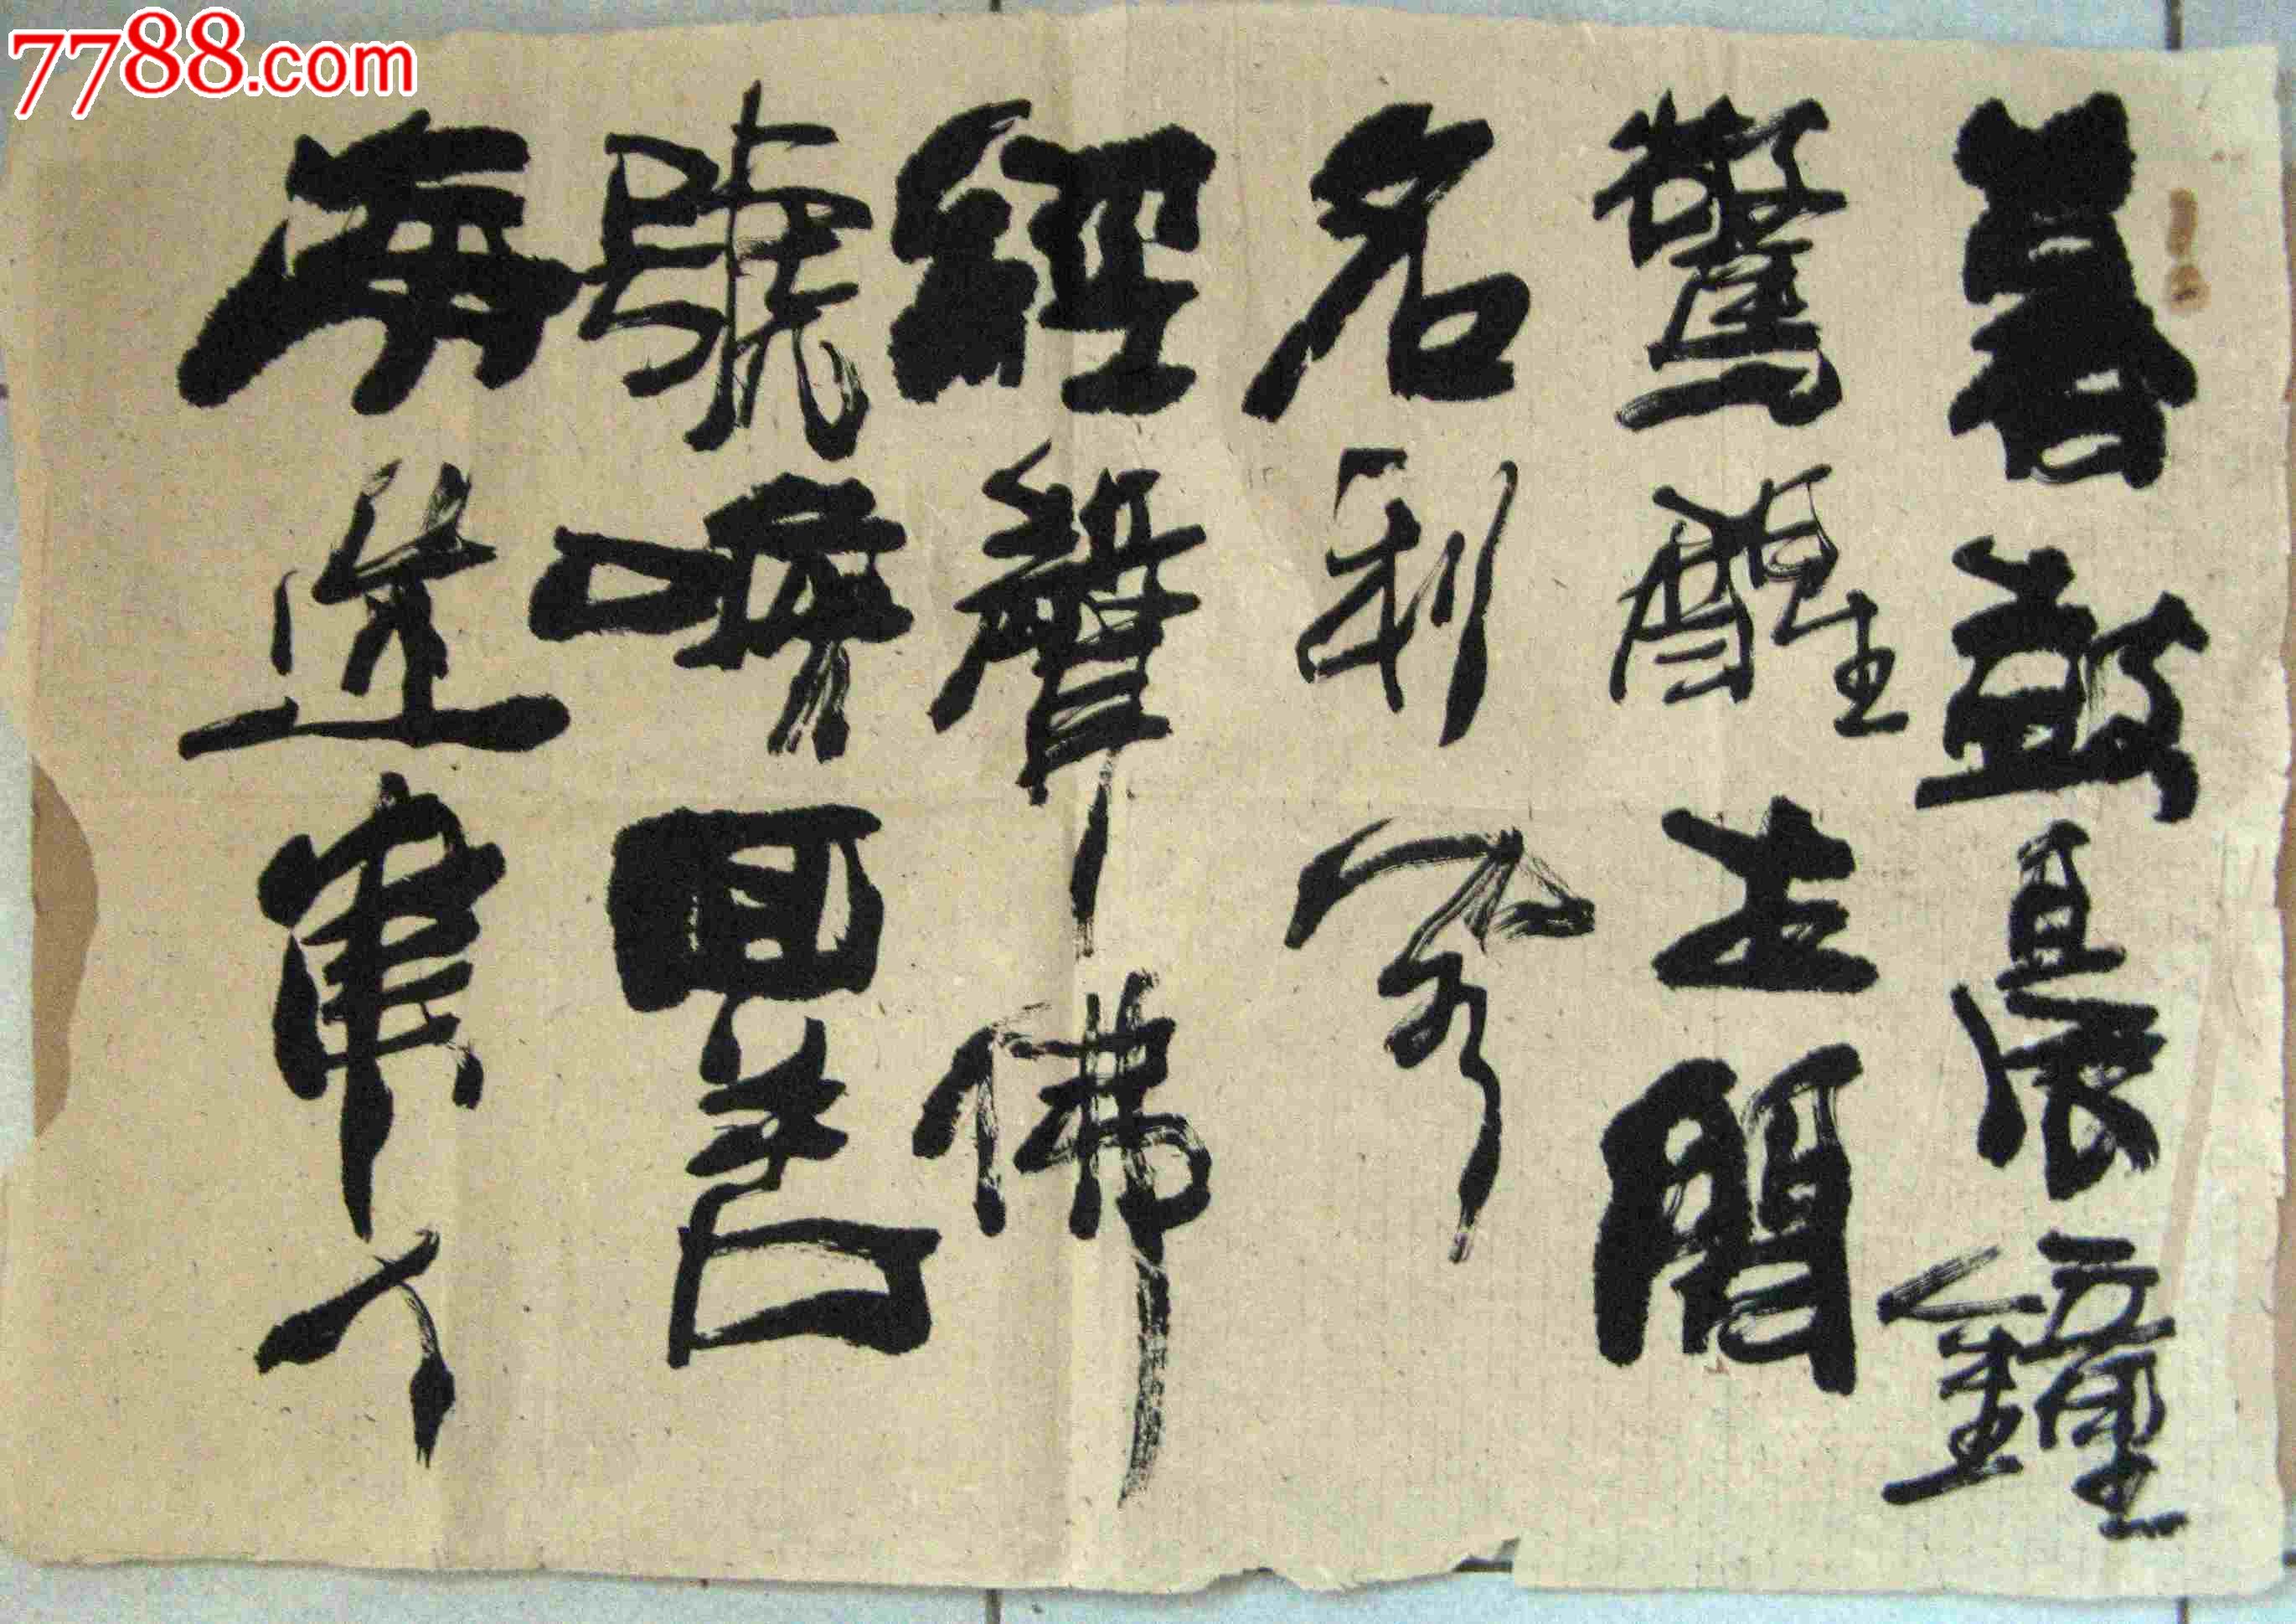 7788.com
暮鼓晨鐘
驚醒世間
名利客
經聲佛
號喚回苦
海迷途人